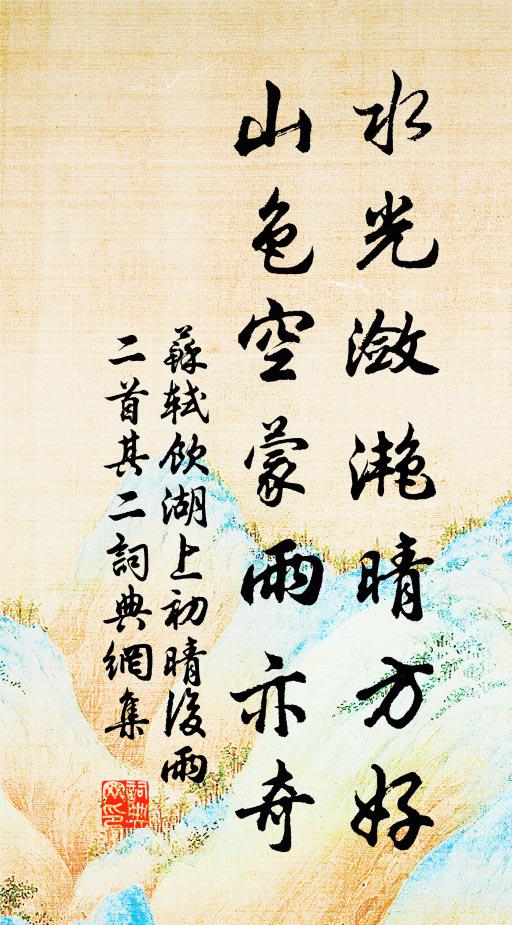 水光潋滟晴方好
山色空蒙雨亦奇
蘇軾飲湖上初晴後雨
二首其二詞典網集